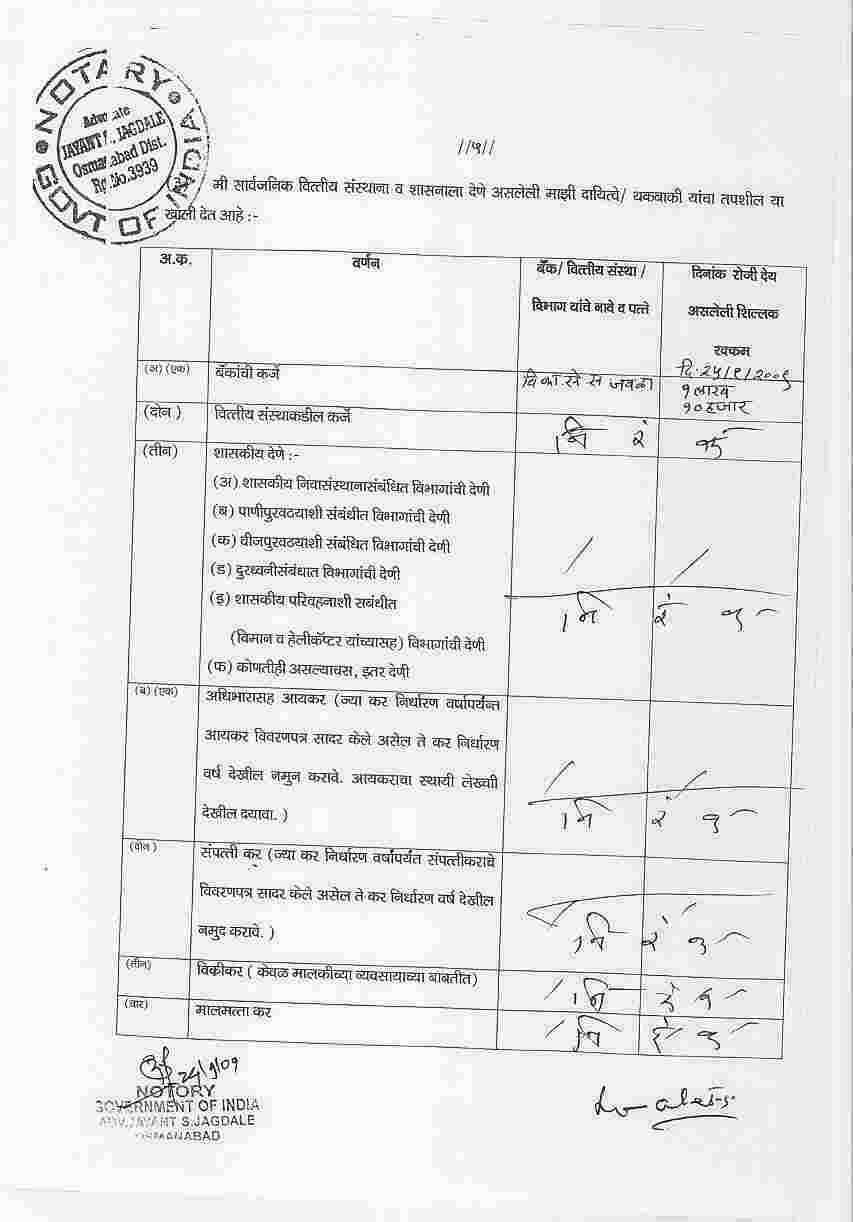 NOTARY
GOVT OF INDIA
Advocate
JAYANT S. JAGDALE
Osmanabad Dist.
Rg.No.3939
//५//
मी सार्वजनिक वित्तीय संस्थाना व शासनाला देणे असलेली माझी दायित्वे/ थकबाकी यांचा तपशील या
खाली देत आहे :-
अ.क्र. वर्णन बँक/ वित्तीय संस्था / दिनांक रोजी देय
विभाग यांचे नावे व पत्ते असलेली शिल्लक
रक्कम
(अ) (एक) बँकांची कर्जे वि.का.से स जवळा दि. २५/९/२००९
१ लाख
१० हजार
(दोन ) वित्तीय संस्थाकडील कर्जे नि रं क
(तीन) शासकीय देणे :-
(अ) शासकीय निवासंस्थानासंबंधित विभागांची देणी
(ब) पाणीपुरवठयाशी संबंधीत विभागांची देणी
(क) वीजपुरवठयाशी संबंधित विभागांची देणी
(ड) दुरध्वनीसंबंधात विभागांची देणी
(इ) शासकीय परिवहनाशी सबंधीत
(विमान व हेलीकॅप्टर यांच्यासह) विभागांची देणी
(फ) कोणतीही असल्याचस, इतर देणी
नि रं क
(ब) (एक) अधिभारासह आयकर (ज्या कर निर्धारण वर्षापर्यन्त
आयकर विवरणपत्र सादर केले असेल ते कर निर्धारण
वर्ष देखील नमुन करावे. आयकराचा स्थायी लेख्वाी
देखील दयावा. )
नि रं क
(दोन) संपत्ती कर (ज्या कर निर्धारण वर्षापर्यंत संपत्तीकराचे
विवरणपत्र सादर केले असेल ते कर निर्धारण वर्ष देखील
नमुद करावे. )
नि रं क
(तीन) विक्रीकर ( केवळ मालकीच्या व्यवसायाच्या बाबतीत) नि रं क
(चार) मालमत्ता कर नि रं क
24/9/09
NOTORY
GOVERNMENT OF INDIA
ADV.JAYANT S.JAGDALE
OSMANABAD